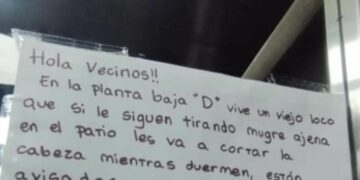 Hola Vecinos!!
En la planta baja "D" vive un viejo loco
que si le siguen tirando mugre ajena
en el patio les va a cortar la
cabeza mientras duermen, están